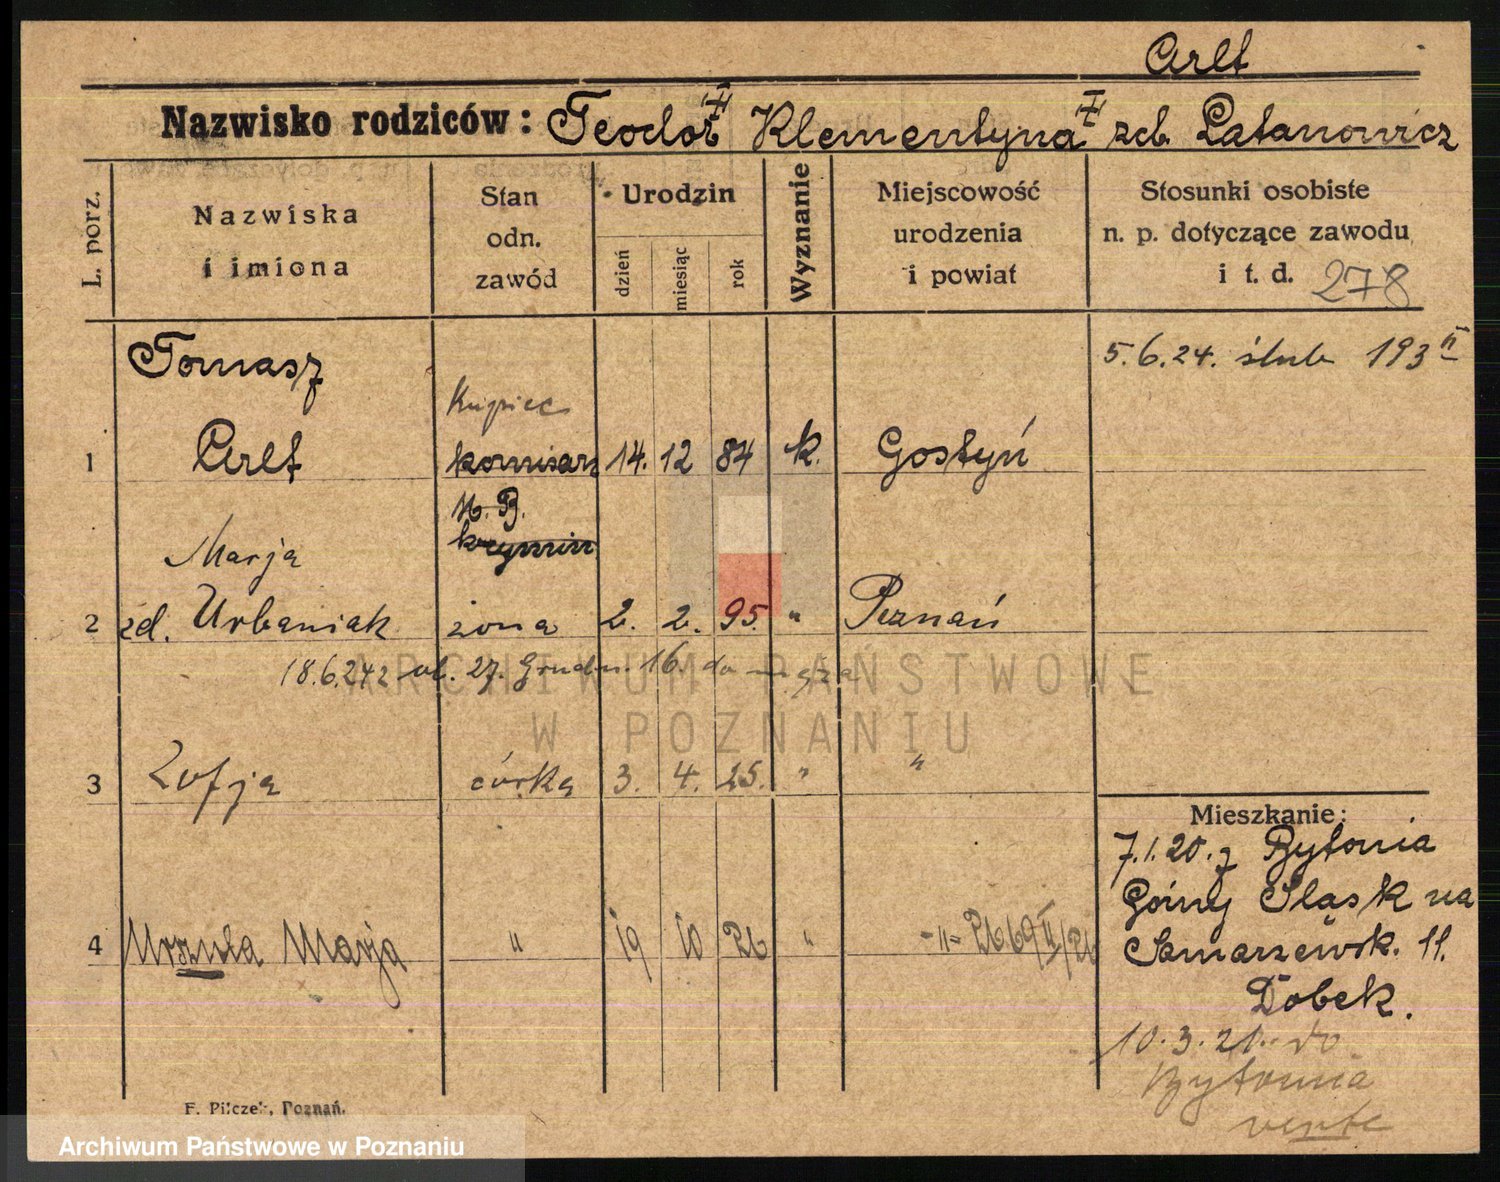 Arlt
Nazwisko rodziców: Teodor † Klementyna † zd. Latanowicz
L. porz.
Nazwiska
i imiona
Stan
odn.
zawód
Urodzin
dzień
miesiąc
rok
Wyznanie
Miejscowość
urodzenia
i powiat
Stosunki osobiste
n. p. dotyczące zawodu
i t. d. 278
5.6.24. ślub 193 II
Tomasz
Kupiec
1 Arlt komisarz 14. 12 84 k. Gostyń
krymin
Marja
2 zd. Urbaniak żona 2. 2. 95. " Poznań
18.6.24 z ul. 27. Grudn. 16. do
3 Zofja córka 3. 4. 25. " "
4 Urszula Marja " 19 10 26 " -"- 69 II/26
Mieszkanie:
7.1.20. z Bytomia
Górny Śląsk na
Samarzewsk. 11.
Dobek.
10.3.21. do
Bytomia
F. Pilczek, Poznań.
ARCHIWUM PAŃSTWOWE
W POZNANIU
Archiwum Państwowe w Poznaniu